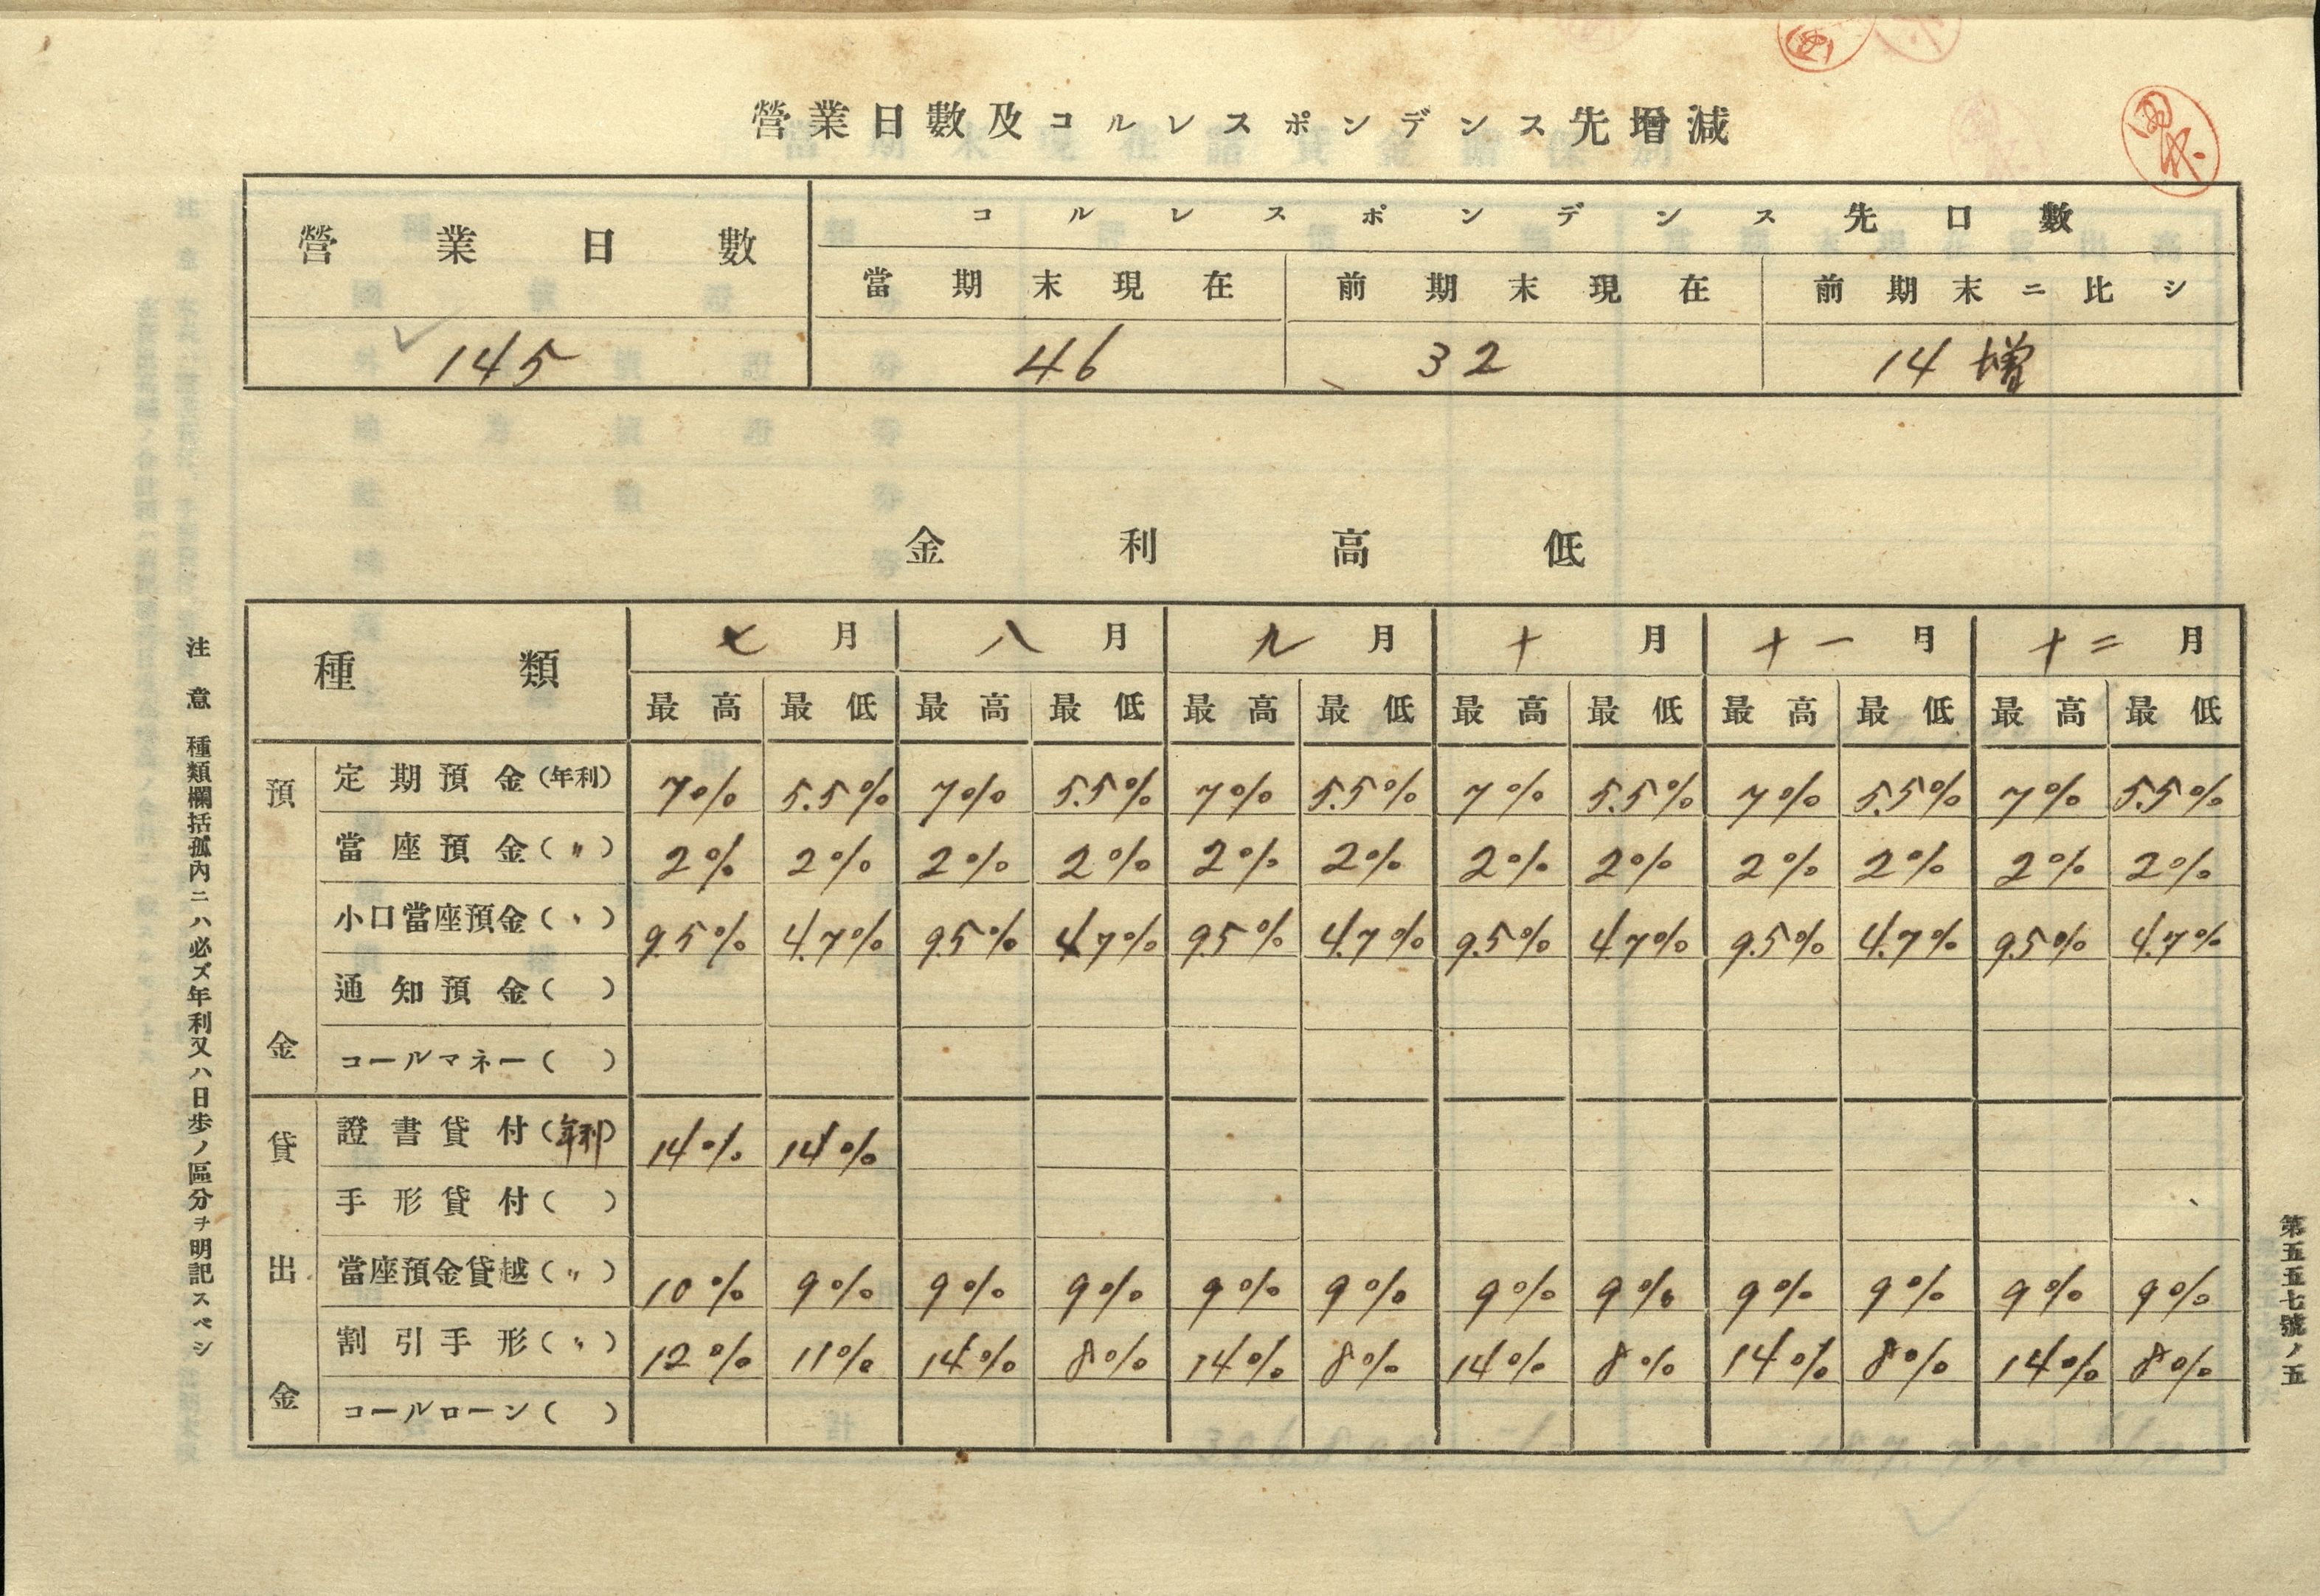 營業日數及コルレスポンデンス先增減
營業日數 コルレスポンデンス先口數
當期末現在 前期末現在 前期末ニ比シ
145 46 32 14 増
金利高低
種類 七月 八月 九月 十月 十一月 十二月
最高 最低 最高 最低 最高 最低 最高 最低 最高 最低 最高 最低
預金
定期預金(年利) 7% 5.5% 7% 5.5% 7% 5.5% 7% 5.5% 7% 5.5% 7% 5.5%
當座預金(〃) 2% 2% 2% 2% 2% 2% 2% 2% 2% 2% 2% 2%
小口當座預金(〃) 9.5% 4.7% 9.5% 4.7% 9.5% 4.7% 9.5% 4.7% 9.5% 4.7% 9.5% 4.7%
通知預金( )
コールマネー( )
貸出金
證書貸付(年利) 14% 14%
手形貸付( )
當座預金貸越(〃) 10% 9% 9% 9% 9% 9% 9% 9% 9% 9% 9% 9%
割引手形(〃) 12% 11% 14% 8% 14% 8% 14% 8% 14% 8% 14% 8%
コールローン( )
注意 種類欄括孤內ニハ必ズ年利又ハ日歩ノ區分ヲ明記スベシ
第五五五七號ノ五